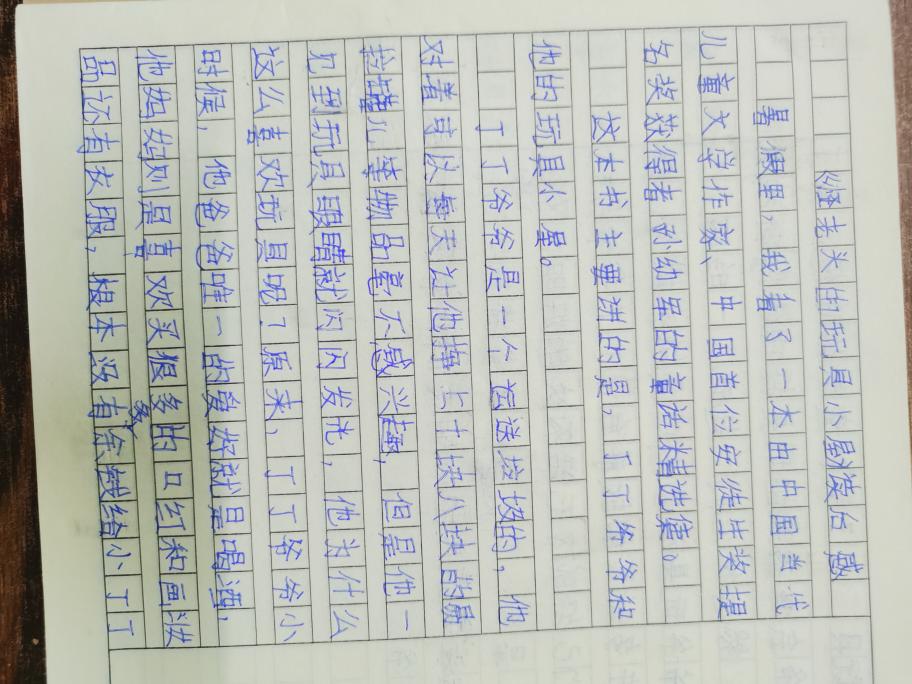 《怪老头的玩具小屋》读后感
暑假里，我看了一本由中国当代
儿童文学作家、中国首位安徒生奖提
名奖获得者孙幼军的童话精选集。
这本书主要讲的是，丁丁爷爷和
他的玩具小屋。
丁丁爷爷是一个运送垃圾的，他
对着可以每天让他挣上十块八块的
罐儿等物品毫不感兴趣，但是他一
见到玩具眼睛就闪闪发光，他为什么
这么喜欢玩具呢？原来，丁丁爷爷小
时候，他爸爸唯一的爱好就是喝酒，
他妈妈则是喜欢买很多的口红和画妆
品还有衣服，根本没有余钱给小丁丁